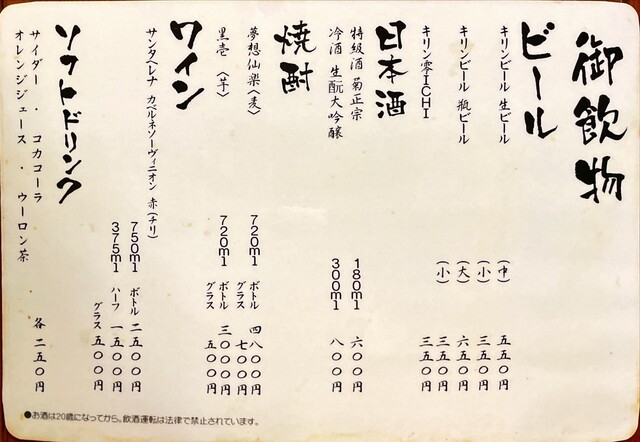 御飲物
ビール
キリンビール 生ビール (中) 五五〇円
(小) 三五〇円
キリンビール 瓶ビール (大) 六五〇円
(小) 三五〇円
キリン零ICHI 三五〇円
日本酒
特級酒 菊正宗 180ml 六〇〇円
冷酒 生酛大吟醸 300ml 八〇〇円
焼酎
夢想仙楽〈麦〉 720ml ボトル 四八〇〇円
グラス 七〇〇円
黒壱 〈芋〉 720ml ボトル 三〇〇〇円
グラス 五〇〇円
ワイン
サンタヘレナ カベルネソーヴィニオン 赤(チリ) 750ml ボトル 二五〇〇円
375ml ハーフ 一五〇〇円
グラス 五〇〇円
ソフトドリンク
サイダー ・ コカコーラ
オレンジジュース ・ ウーロン茶
各 二五〇円
●お酒は20歳になってから。飲酒運転は法律で禁止されています。